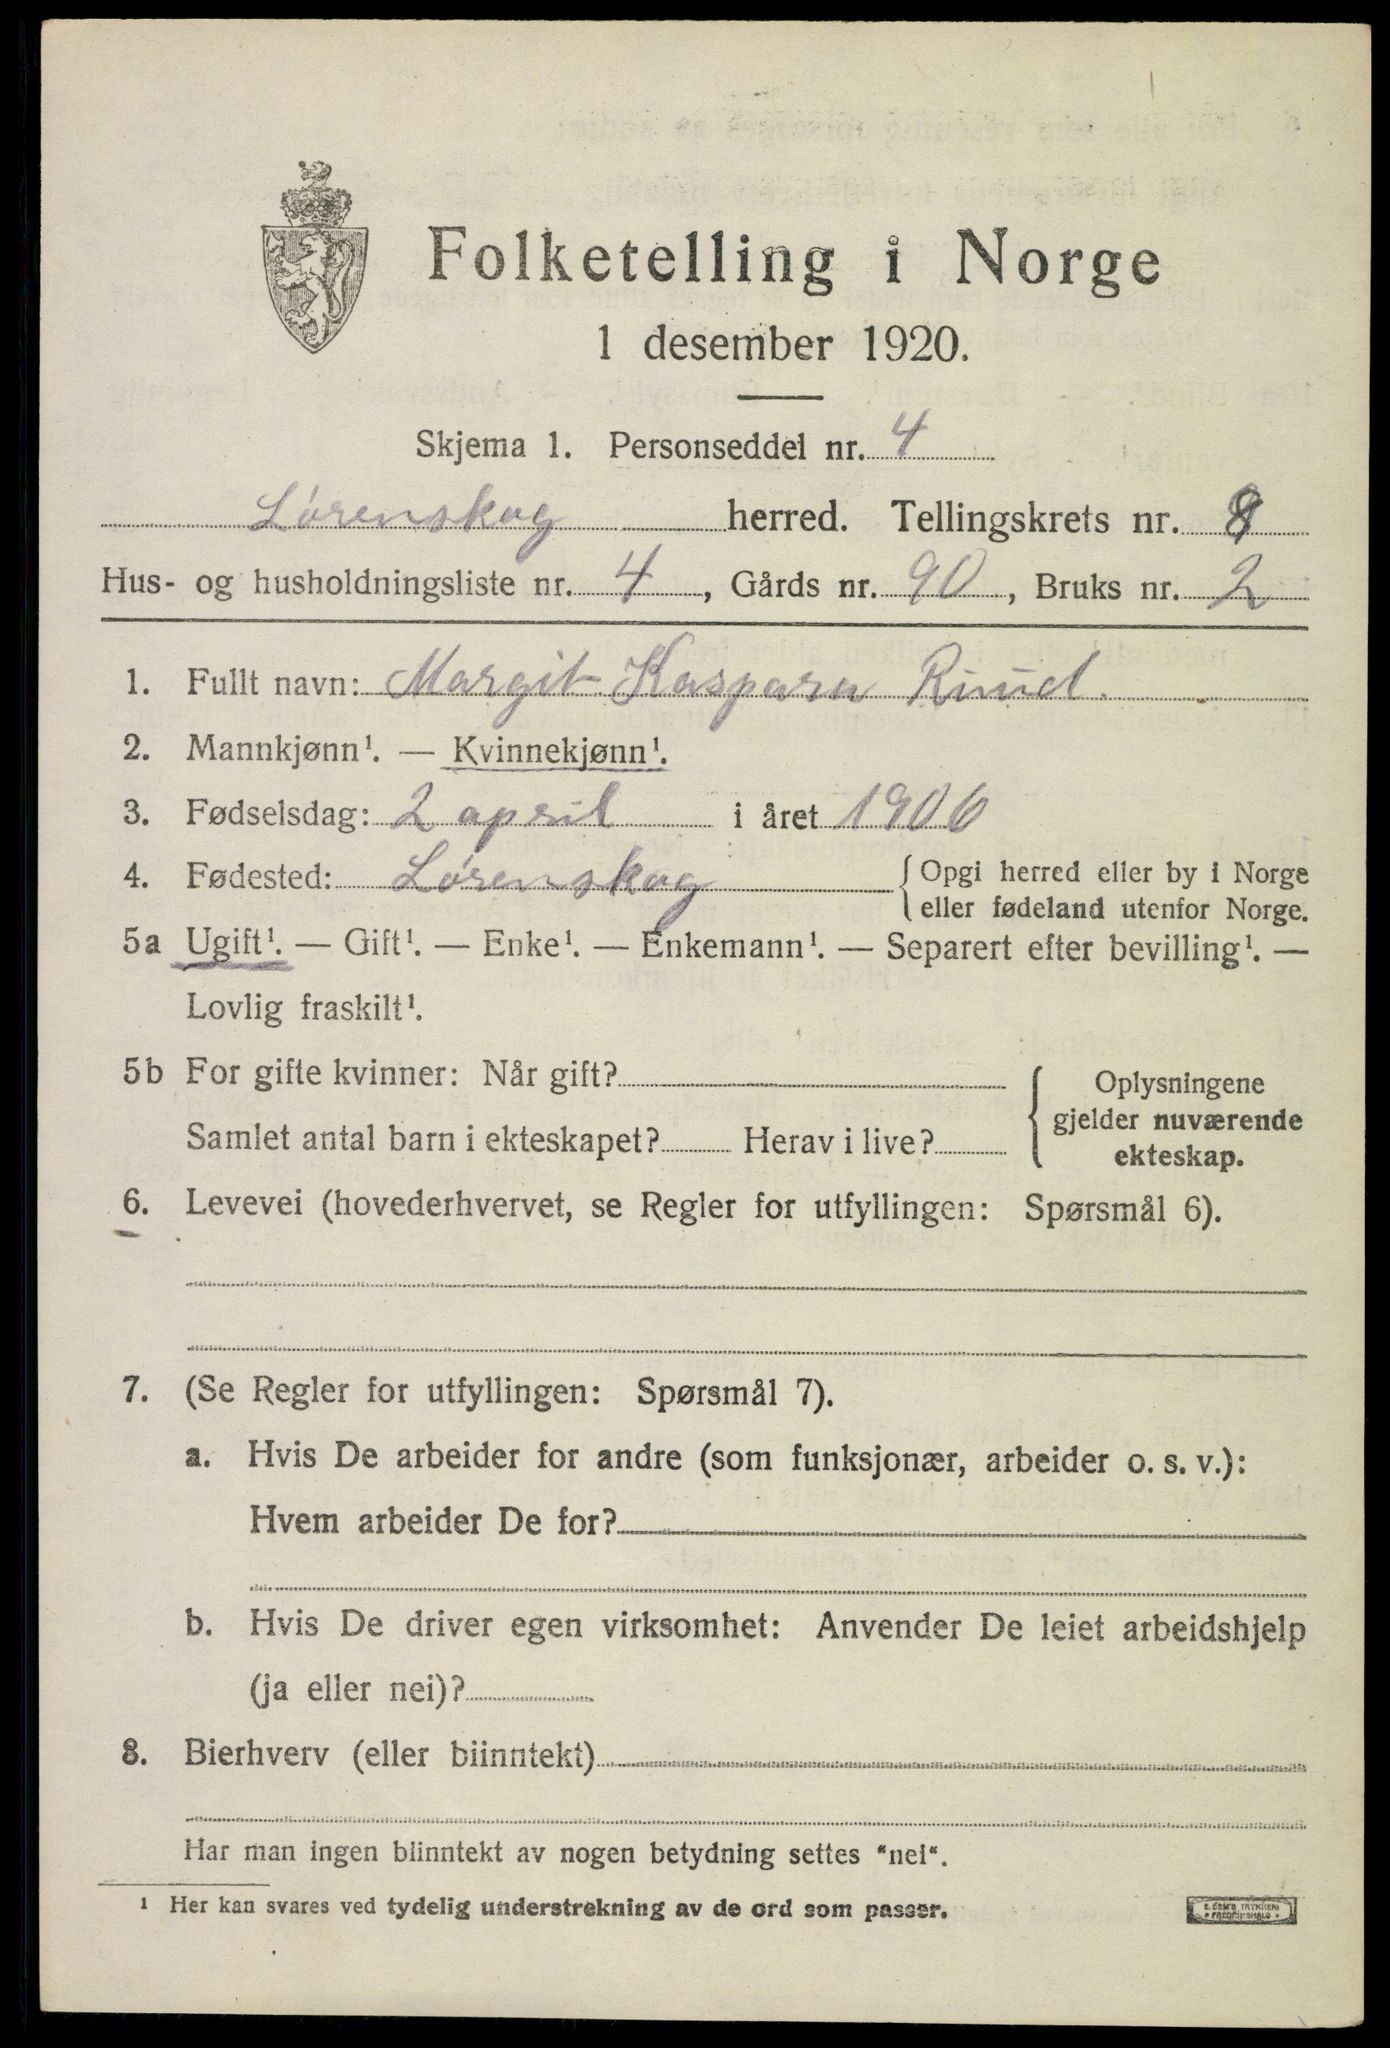 Folketelling i Norge
1 desember 1920.
Skjema 1. Personseddel nr. 4
Lørenskog herred. Tellingskrets nr. 8
Hus- og husholdningsliste nr. 4, Gårds nr. 90, Bruks nr. 2
1. Fullt navn: Margit Kaspara Ruud.
2. Mannkjønn¹. — Kvinnekjønn¹.
3. Fødselsdag: 2 april i året 1906
4. Fødested: Lørenskog { Opgi herred eller by i Norge
eller fødeland utenfor Norge.
5a Ugift¹. — Gift¹. — Enke¹. — Enkemann¹. — Separert efter bevilling¹. —
Lovlig fraskilt¹.
5b For gifte kvinner: Når gift?
Samlet antal barn i ekteskapet? Herav i live?
Oplysningene
gjelder nuværende
ekteskap.
6. Levevei (hovederhvervet, se Regler for utfyllingen: Spørsmål 6).
7. (Se Regler for utfyllingen: Spørsmål 7).
a. Hvis De arbeider for andre (som funksjonær, arbeider o. s. v.):
Hvem arbeider De for?
b. Hvis De driver egen virksomhet: Anvender De leiet arbeidshjelp
(ja eller nei)?
8. Bierhverv (eller biinntekt)
Har man ingen biinntekt av nogen betydning settes "nei".
¹ Her kan svares ved tydelig understrekning av de ord som passer.
E. SEM'S TRYKKERI
* FREDRIKSHALD *